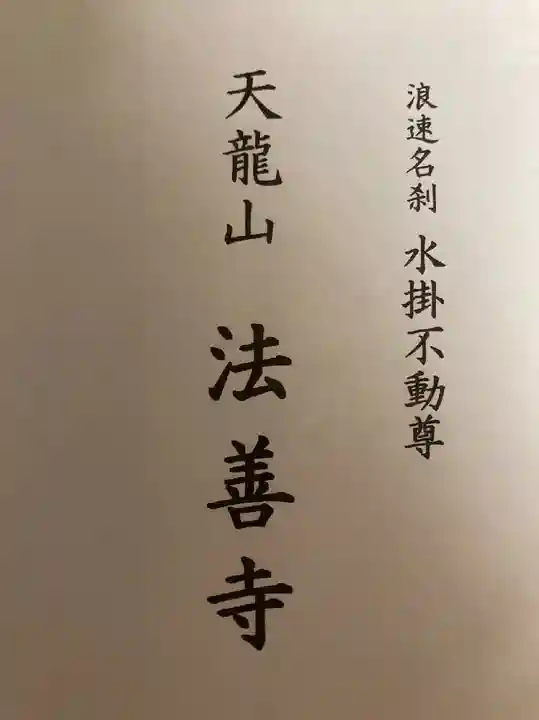 浪速名刹 水掛不動尊
天龍山 法善寺